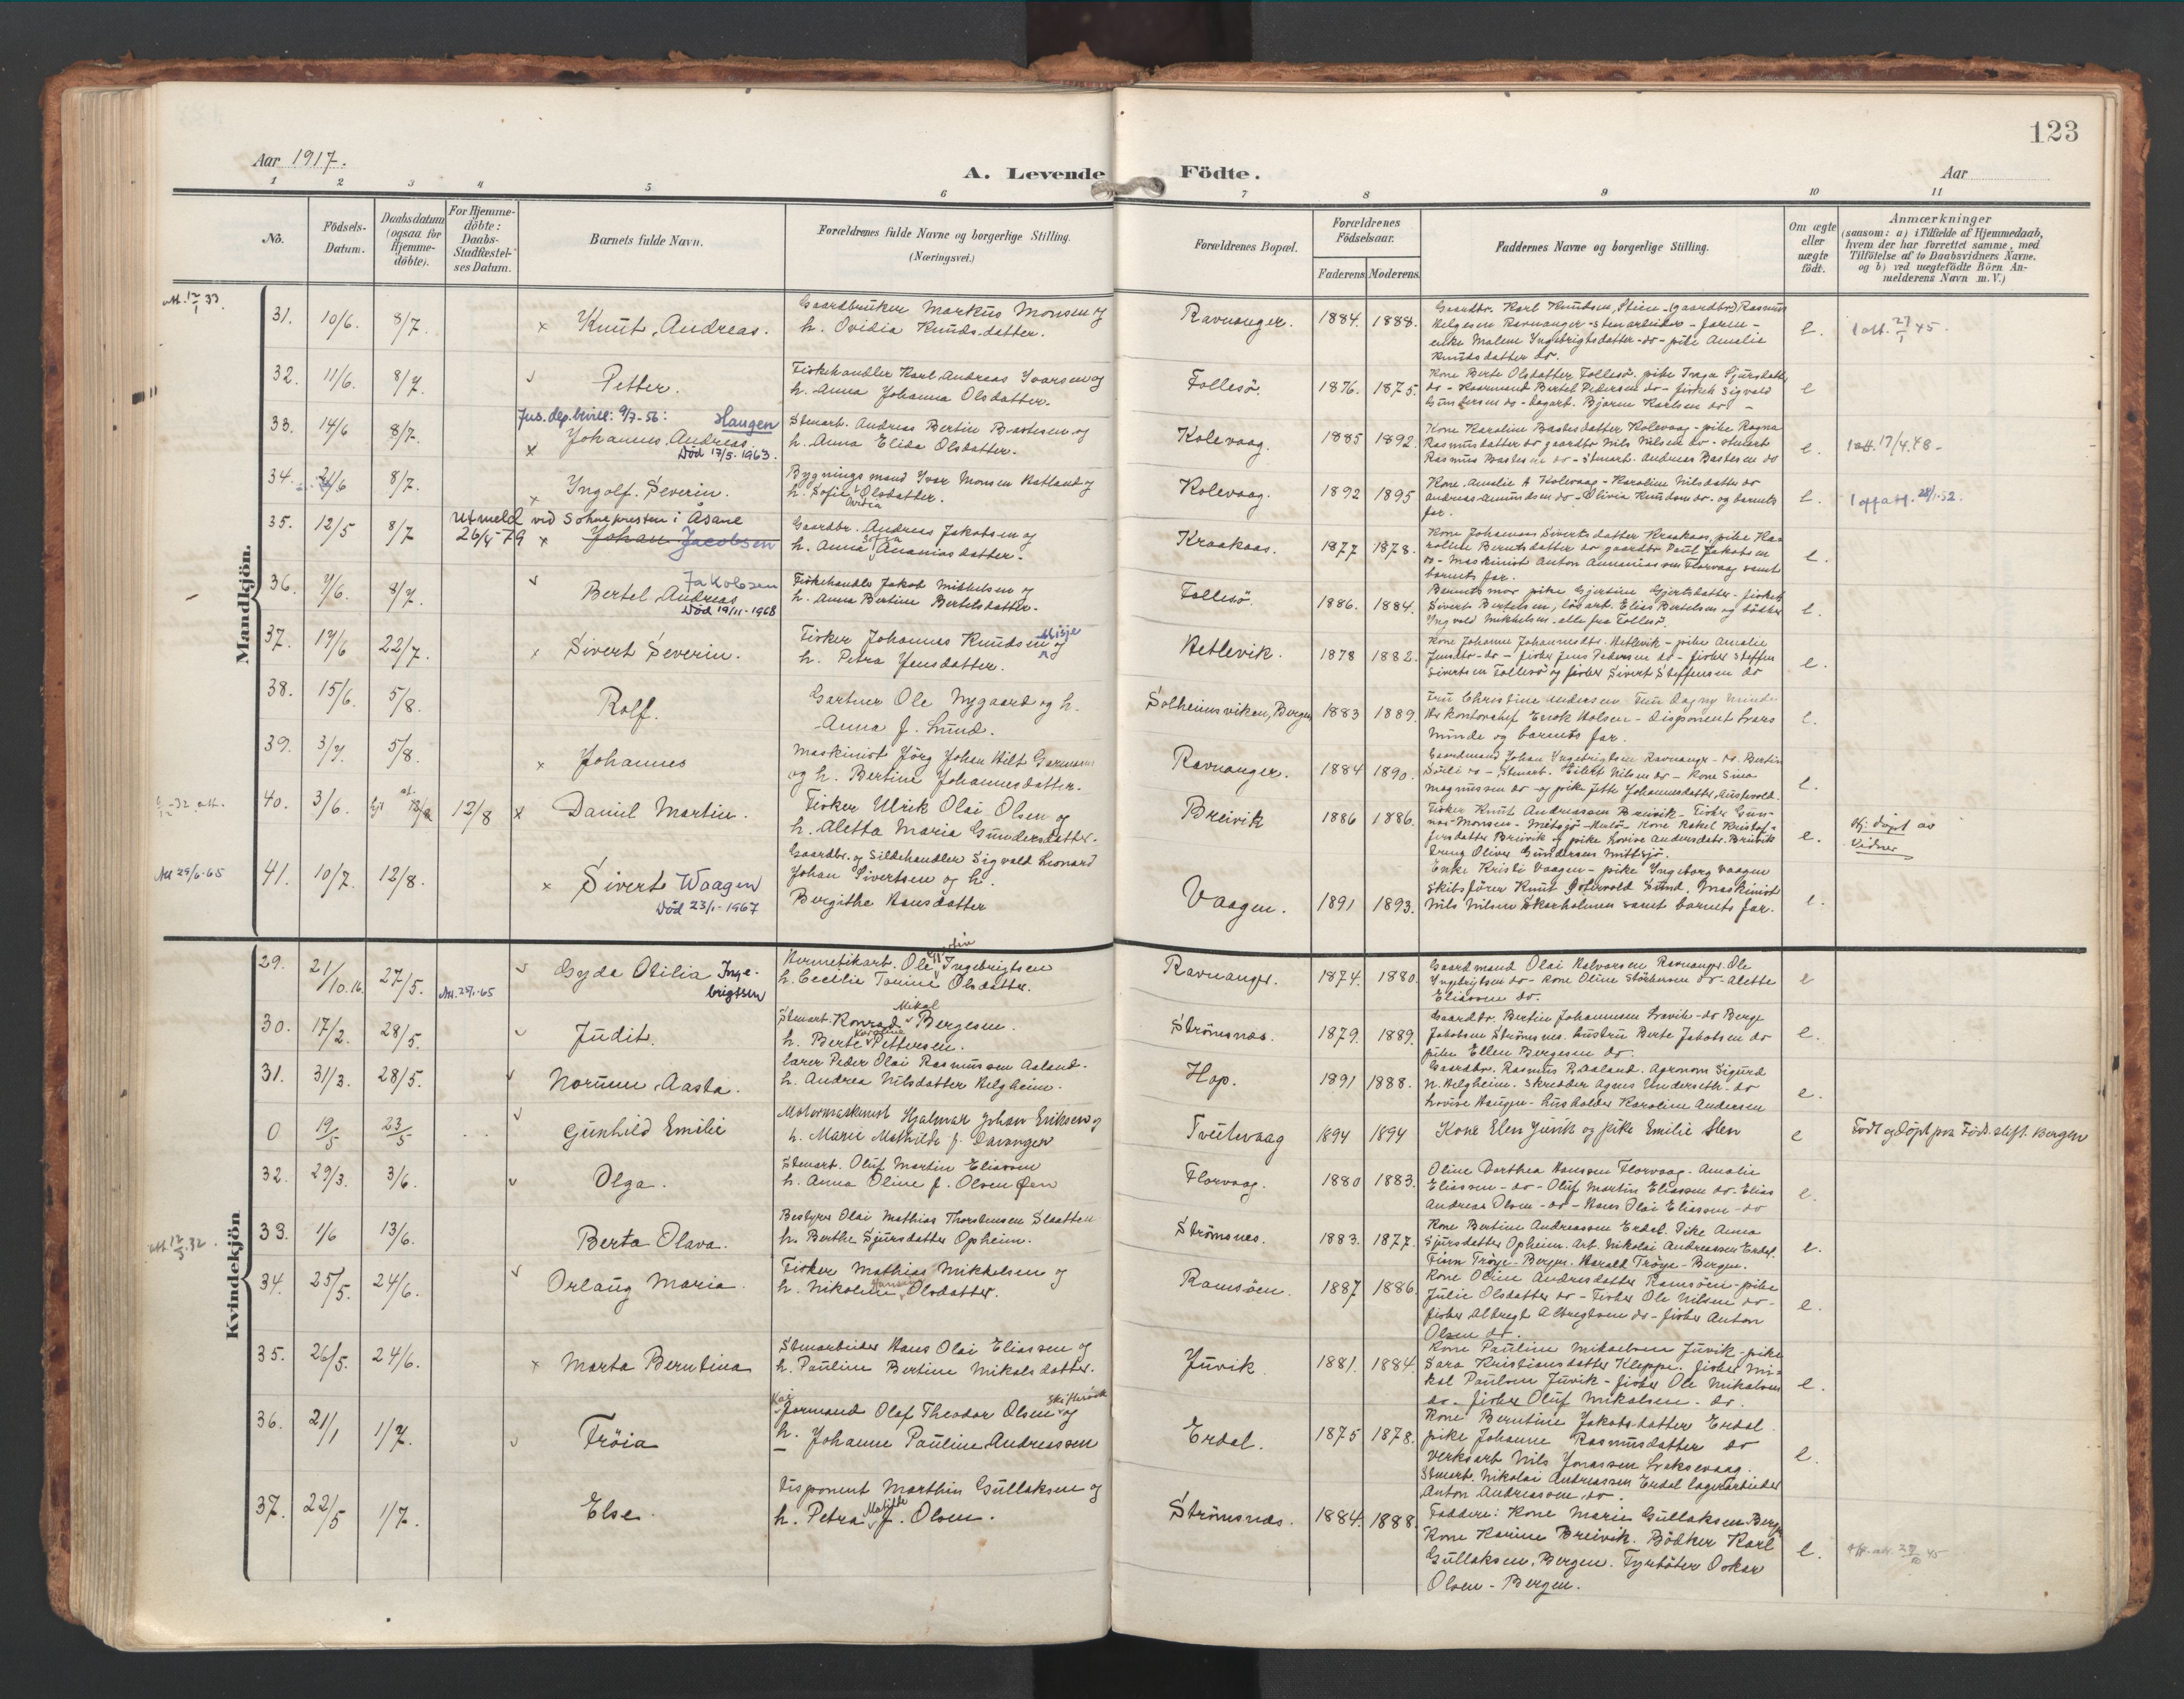 123
Aar 1917.
A. Levende Födte.
Aar
1 2 3 4 5 6 7 8 9 10 11
No.
Födsels-
Datum.
Daabsdatum
(ogsaa for
Hjemme-
döbte).
For Hjemme-
döbte:
Daabs-
Stadfæstel-
ses Datum.
Barnets fulde Navn.
Forældrenes fulde Navne og borgerlige Stilling.
(Næringsvei.)
Forældrenes Bopæl.
Forældrenes
Födselsaar.
Faderens. Moderens.
Faddernes Navne og borgerlige Stilling.
Om ægte
eller
uægte
födt.
Anmærkninger
(saasom: a) i Tilfælde af Hjemmedaab,
hvem der har forrettet samme, med
Tilföielse af to Daabsvidners Navne.
og b) ved uægtefödte Börn An-
melderens Navn m. V.)
Mandkjön.
31. 10/6. 8/7. x Knut Andreas.
Gaardbruker Markus Monsen og
h. Ovidia Knudsdatter.
Ravnanger. 1884. 1888.
Gaardbr. Karl Knudsen, Stien - (gaardbr) Rasmus
Helgesen Ravnanger - stenarbeider - faren -
enke Malene Ingebrigtsdatter - do - pike Amalie
Knudsdatter do.
e. 1 att. 27/1 45.
32. 11/6. 8/7. Petter.
Fiskehandler Karl Andreas Ivarsen og
h. Anna Johanna Olsdatter.
Follesö. 1876. 1875.
Kone Berte Olsdatter Follesö. pike Inga Sjursdatter
do - Kaarmand Bertel Pedersen do - fiskeh. Sigvald
Gundersen do - dagarb. Bjarne Karlsen do -
e
33. 14/6 8/7.
Jus. dep. bevill: 9/7-56: Haugen
x Johannes Andreas.
Död 17/5-1963.
Stenarb. Andreas Bertin Bastesen og
h. Anna Elida Olsdatter.
Kolevaag. 1885 1892.
Kone Karoline Bastesdatter Kolevaag - pike Ragna
Rasmusdatter do gaardbr Nils Nilsen do - stenarb
Rasmus Bastesen do - Stenarb. Andreas Bastesen do
e. 1 att. 17/4.48 -
34. 21/6 8/7. x Ingolf Severin.
Bygningsmand Ivar Monsen Hatland og
h. Sofie Olsdatter.
Ovidia
Kolevaag. 1892 1895
Kone Amalie A Kolevaag - Karoline Nilsdatter do
Andreas Amundsen do - Olivia Knudsen do - og barnets
far.
e.
35. 12/5 8/7
Utmeld ved Sokneprestn i Åsane
26/4-79 x Johan Jacobsen
Gaardbr. Andreas Jakobsen og
h. Anna Sofia Ananiasdatter.
Kraakaas. 1877 1878.
Kone Johannes Sivertsdatter Kraakaas, pike Ka-
roline Berntsdatter do gaardbr Paul Jakobsen
do - Maskinist Anton Annaniassen Florvaag samt
barnets far.
e.
36. 7/6. 8/7. Jakobsen
Bertel Andreas
Död 19/11-1968
Fiskehandler Jakob Mikkelsen og
h. Anna Bertine Bertelsdatter.
Follesö. 1886. 1884.
Barnets mor pike Gjertine Gjertsdatter - fiskeh
Sivert Bertelsen, lösarb. Elias Bertelsen og bödker
Ingvald Mikkelsen. alle fra Follesö.
e.
37. 17/6 22/7. x Sivert Severin.
Fisker Johannes Knudsen Misje og
h. Petra Jensdatter.
Hetlevik. 1878 1882.
Kone Johanna Johannesdtr. Hetlevik - pike Amalie
Jensdtr - do - fisker Jens Pedersen do - fisker Steffen
Sivertsen Follesö og fisker Sivert Steffensen do
e.
38. 15/6. 5/8. Rolf.
Gartner Ole Nygaard og h.
Anna f. Lund.
Solheimsviken, Bergen 1883 1889.
Fru Christine Andersen Fru Dagny Minde
Hr kontorchef Enok Holsen - Disponent Lars
Minde og barnets far.
e.
39. 3/7. 5/8. x Johannes
Maskinist Jörg Johan Wilt Garmann
og h. Bertine Johannesdatter.
Ravnanger. 1884 1890.
Gaardmand Johan Ingebrigtsen Ravnanger - do. Bertin
Söili do - Stenarb. Eilert Nilsen do - Kone Sina
Magnussen do og pike Jette Johannesdatter, Austevold.
e.
40. 3/6. 12/8 x Daniel Martin.
Fisker Ulrik Olai Olsen og
h. Aletta Maria Gundersdatter.
Breivik 1886 1886.
Fisker Knut Andreassen Breivik - Fisker Gun-
nar Monsen - Mitsjö - Kone Rakel Kristof-
fersdatter Breivik og pike Lovise Andersdatr. Breivik
Dreng Oliver Gundersen Mittsjö.
e. Hj. döpt av
Vidner
41. 10/7. 12/8. x Sivert Waagen
Död 23/1-1967
Gaardbr. og Sildehandler Sigvald Leonard
Johan Sivertsen og h.
Bergithe Hansdatter
Vaagen. 1891 1893.
Enke Kristi Vaagen - pike Ingeborg Vaagen
Skibsförer Knut Östervold Sund, Maskinist
Nils Nilsen Skarholmen samt barnets far.
e.
Kvindekjön
29. 21/10.16. 27/5. Att. 25/1-65 Gyda Otilia Inge-
brigtsen
Hermetikarb. Ole Martin Ingebrigtsen
h. Cecilie Tomine Olsdatter.
Ravnanger. 1874. 1880.
Gaardmand Olai Halvorsen Ravnanger. Ole
Ingebrigtsen do - Kone Oline Störksen do - Alette
Eliassen do.
e
30. 17/2. 28/5. Judit.
Stenarb. Konrad Mikal Bergesen.
h. Berte Kristine Pettersen.
Strömsnes. 1879. 1889.
Gaardbr. Bertin Johannesen Leevik - do Berge
Jakobsen Strömsnes. hustru Berte Jakobsen do
pike Ellen Bergesen do.
e.
31. 31/3. 28/5. Norunn Aasta.
Lærer Peder Olai Rasmussen Aaland.
h. Andrea Nilsdatter Helgheim.
Hop. 1891 1888.
Gaardbr. Rasmus P. Aaland. Agronom Sigurd
N. Helgheim. Skrædder Agnes Underseth - do
Lovise Haugen - husholder Karoline Andersen
e.
0 19/5 23/5 Gunhild Emilie
Motormaskinist Hjalmar Johan Eriksen og
h. Marie Mathilde f. Davanger
Trutevaag 1894 1894
Kone Elen Juvik og pike Emilie Sten
e Födt og döpt paa Föds. stift. Bergen
32. 29/3. 3/6. Olga.
Stenarb. Oluf Martin Eliassen
h. Anna Oline f. Olsen Öen
Florvaag. 1880 1883.
Oline Dorthea Hanssen Florvaag - Amalie
Eliassen - do - Oluf Martin Eliassen do - Elias
Andreas Olsen - do - Hans Olai Eliassen - do
e.
33. 1/6 13/6. Berta Olava.
Bestyrer Olai Mathias Thorstensen Slaatten
h. Berthe Sjursdatter Opheim.
Strömsnes. 1883. 1877.
Kone Bertine Andreassen Erdal. Pike Anna
Sjursdatter Opheim. Arb. Nikolai Andreassen Erdal.
Finn Tröye - Bergen. Harald Tröye - Bergen.
e.
34. 25/5. 24/6. Orlaug Maria
Fisker Mathias Mikkelsen og
h. Nikoline Hansine Olsdatter.
Ramsöen. 1887 1886.
Kone Oline Andersdatter Ramsöen - pike
Julie Olsdatter do - Fisker Ole Nilsen do -
fisker Albregt Albregtsen do - fisker Anton
Olsen do.
e.
35. 26/5. 24/6. x Marta Berntina
Stenarbeider Hans Olai Eliassen og
h. Pauline Bertine Nikolsdatter.
Juvik 1881. 1884
Kone Pauline Mikaelsen Juvik - pike
Sara Kristiansdatter Kleppe. fisker Mi-
kal Paulsen Juvik - fisker Ole Mikalsen
do - fisker Oluf Mikalsen - do.
e.
36. 21/1 1/7. Tröia
Formand Olaf Theodor Olsen og
h. Johanne Pauline Andreassen
Erdal. 1875 1878.
Kone Berntine Jakobsdatter Erdal.
pike Johanne Rasmusdatter do
Verksarb Nils Jonassen Laksevaag.
Stenarb. Nikolai Andreassen Erdal lagerarbeider
Anton Andreassen do.
e.
37. 22/5 1/7. Else.
Disponent Marthin Gullaksen og
h. Petra Matilde f. Olsen.
Strömsnes. 1884. 1888.
Faddere: Kone Marie Gullaksen Bergen
Kone Karine Breivik. Bödker Karl
Gullaksen, Bergen. Fyrböter Oskar
Olsen - Bergen.
e.